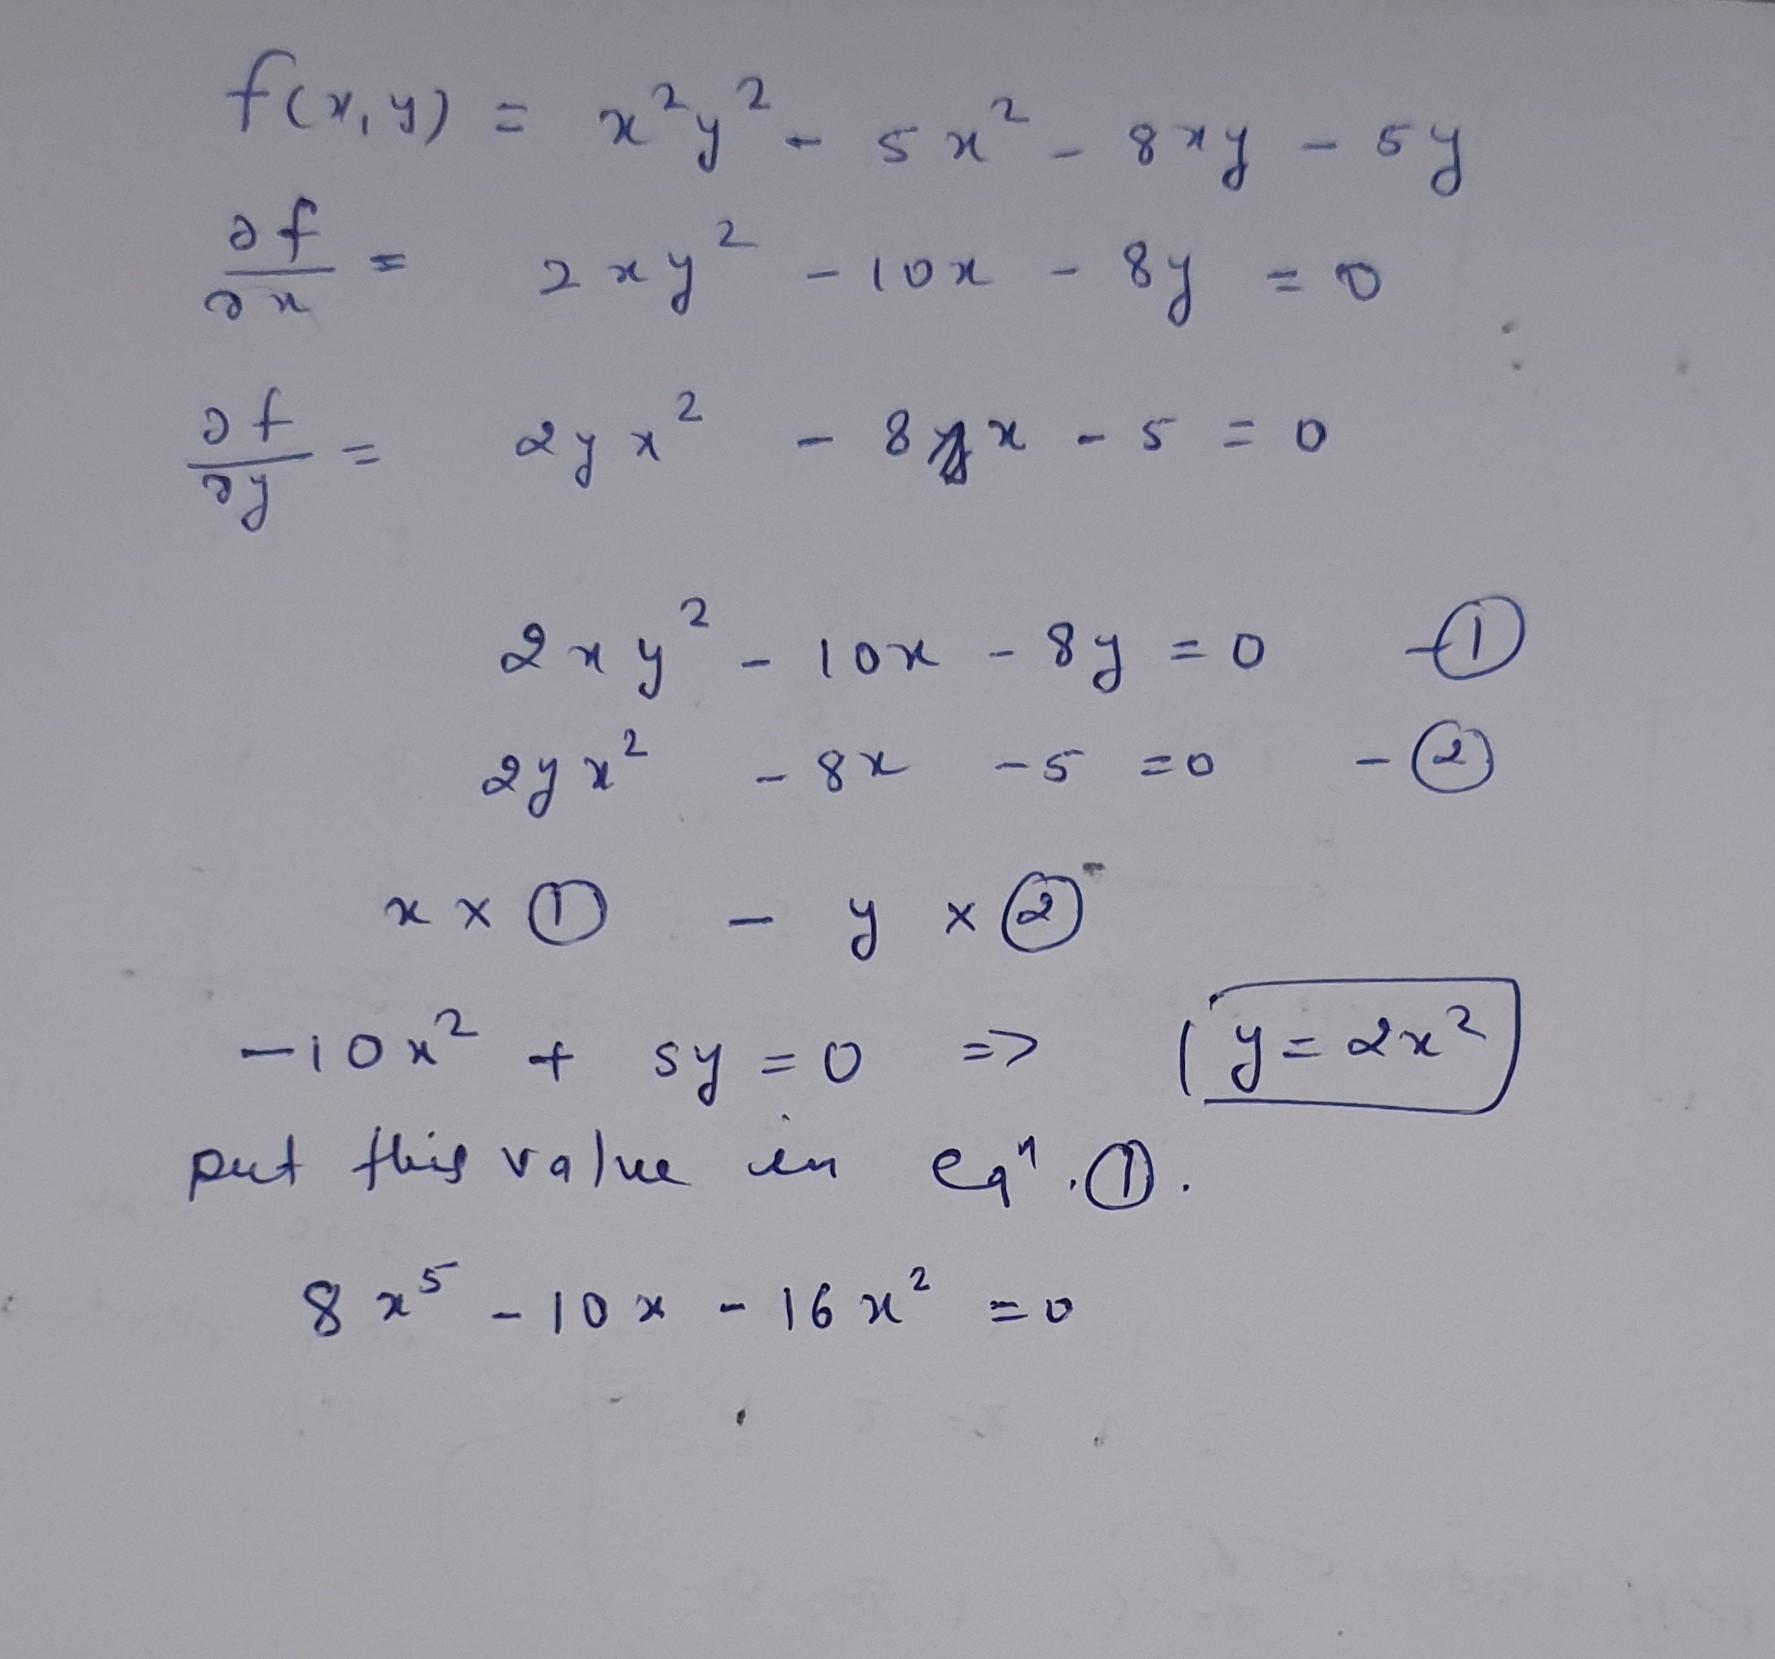 f(x,y) = x²y² - 5x² - 8xy - 5y
∂f/∂x = 2xy² - 10x - 8y = 0
∂f/∂y = 2yx² - 8x - 5 = 0
2xy² - 10x - 8y = 0 - ①
2yx² - 8x - 5 = 0 - ②
x × ① - y × ②
-10x² + 5y = 0 => y = 2x²
put this value in eqⁿ. ①.
8x⁵ - 10x - 16x² = 0